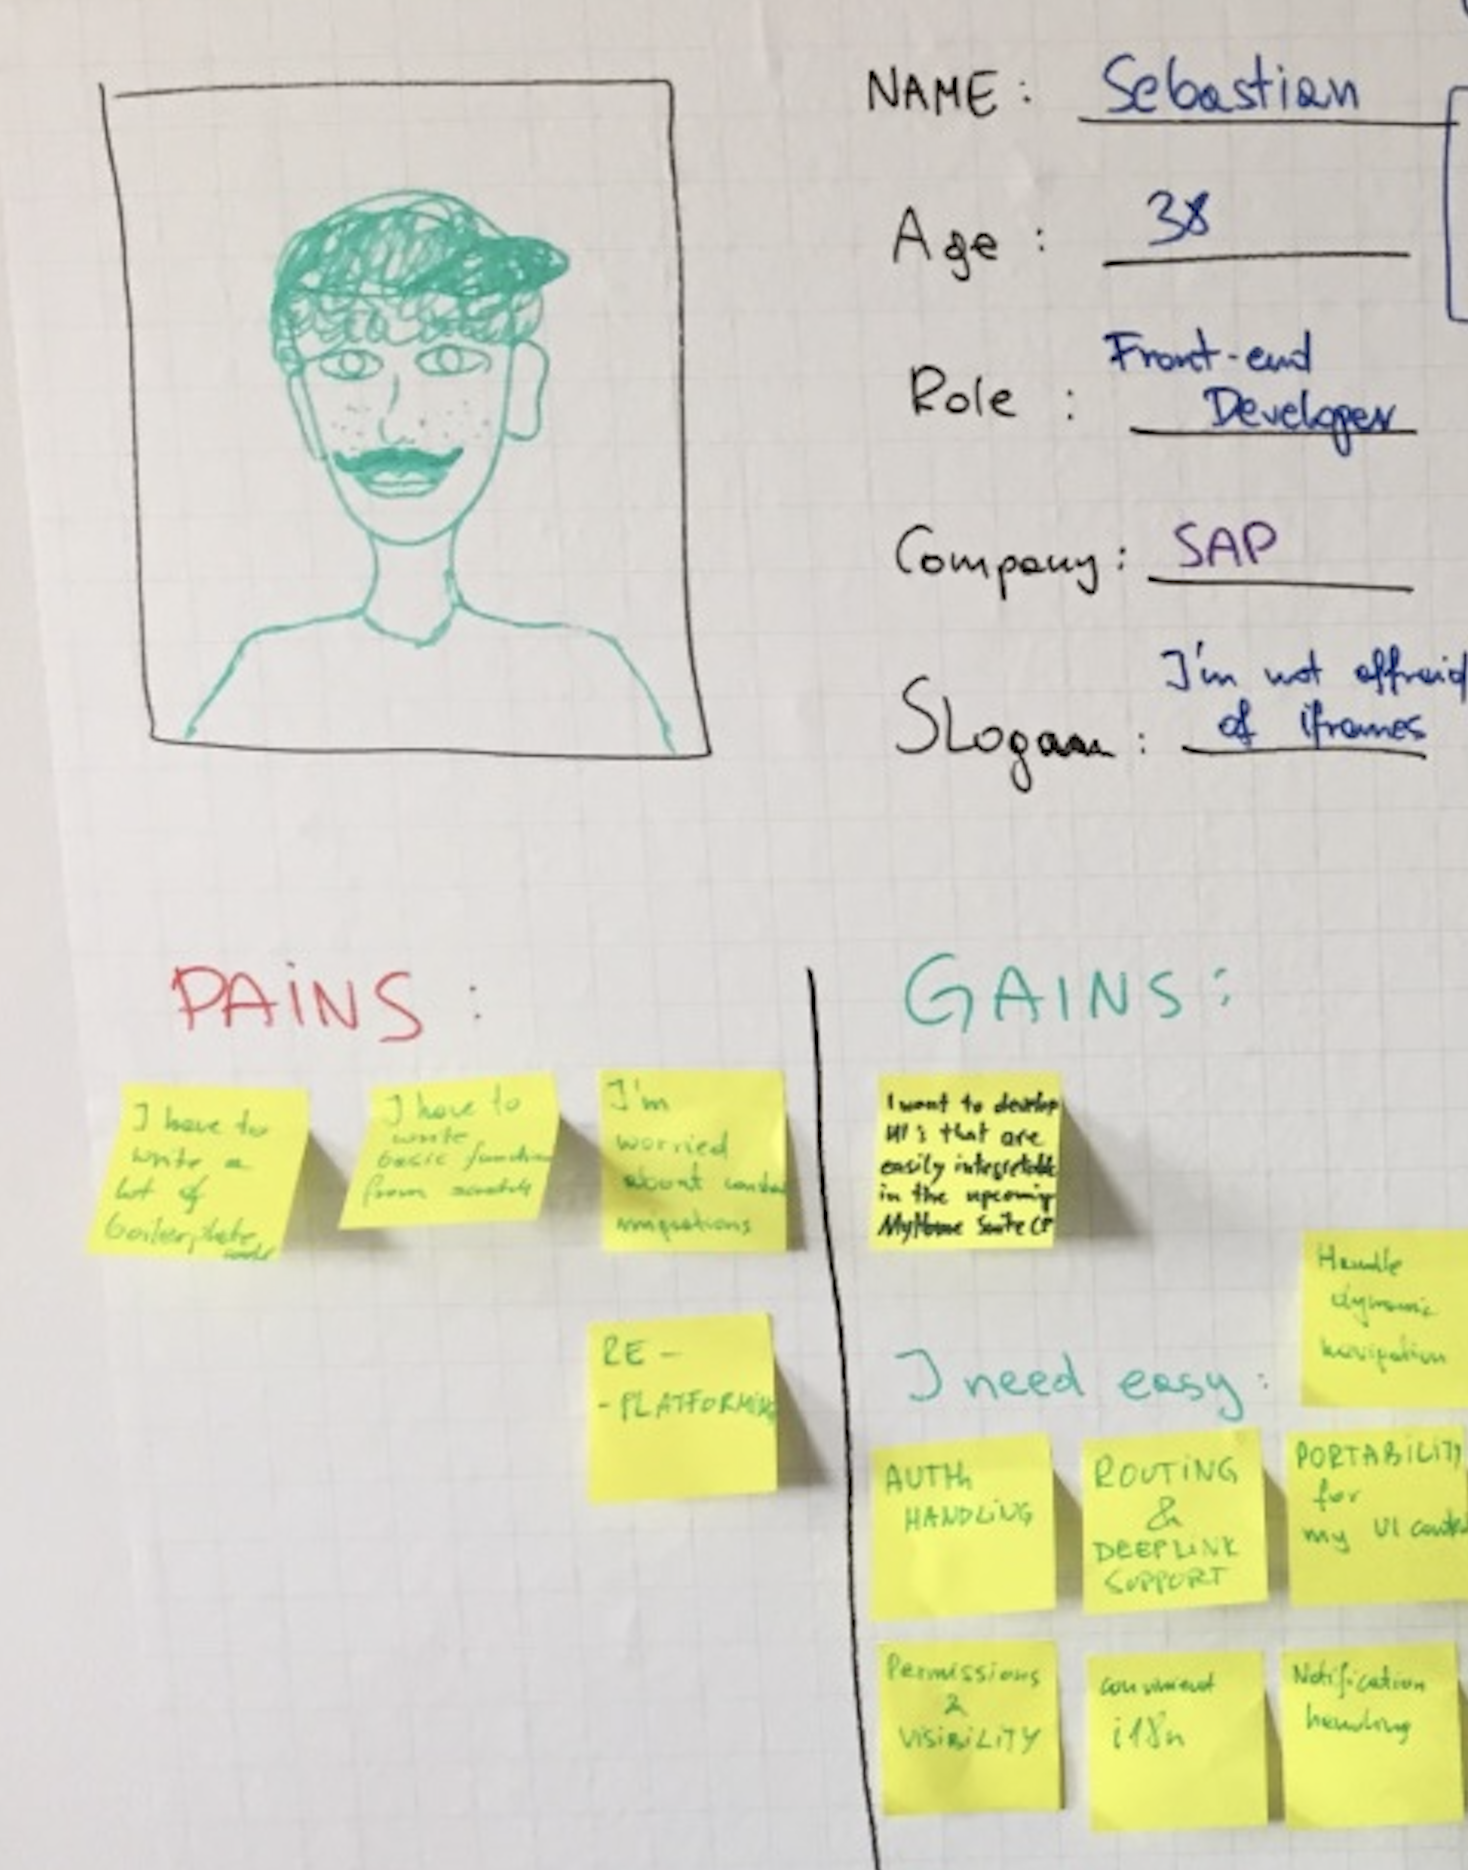 NAME : Sebastian
Age : 38
Role : Front-end
Developer
Company : SAP
Slogan : I'm not affraid
of iframes
PAINS :
I have to
write a
lot of
boilerplate
code
I have to
write
basic function
from scratch
I'm
worried
about
migrations
RE -
- PLATFORMING
GAINS :
I want to develop
UI's that are
easily integretable
in the upcoming
MyHome Suite CP
Handle
dynamic
navigation
I need easy :
AUTH
HANDLING
ROUTING
&
DEEPLINK
SUPPORT
PORTABILITY
for
my UI code
Permissions
&
VISIBILITY
convinient
i18n
Notification
handling